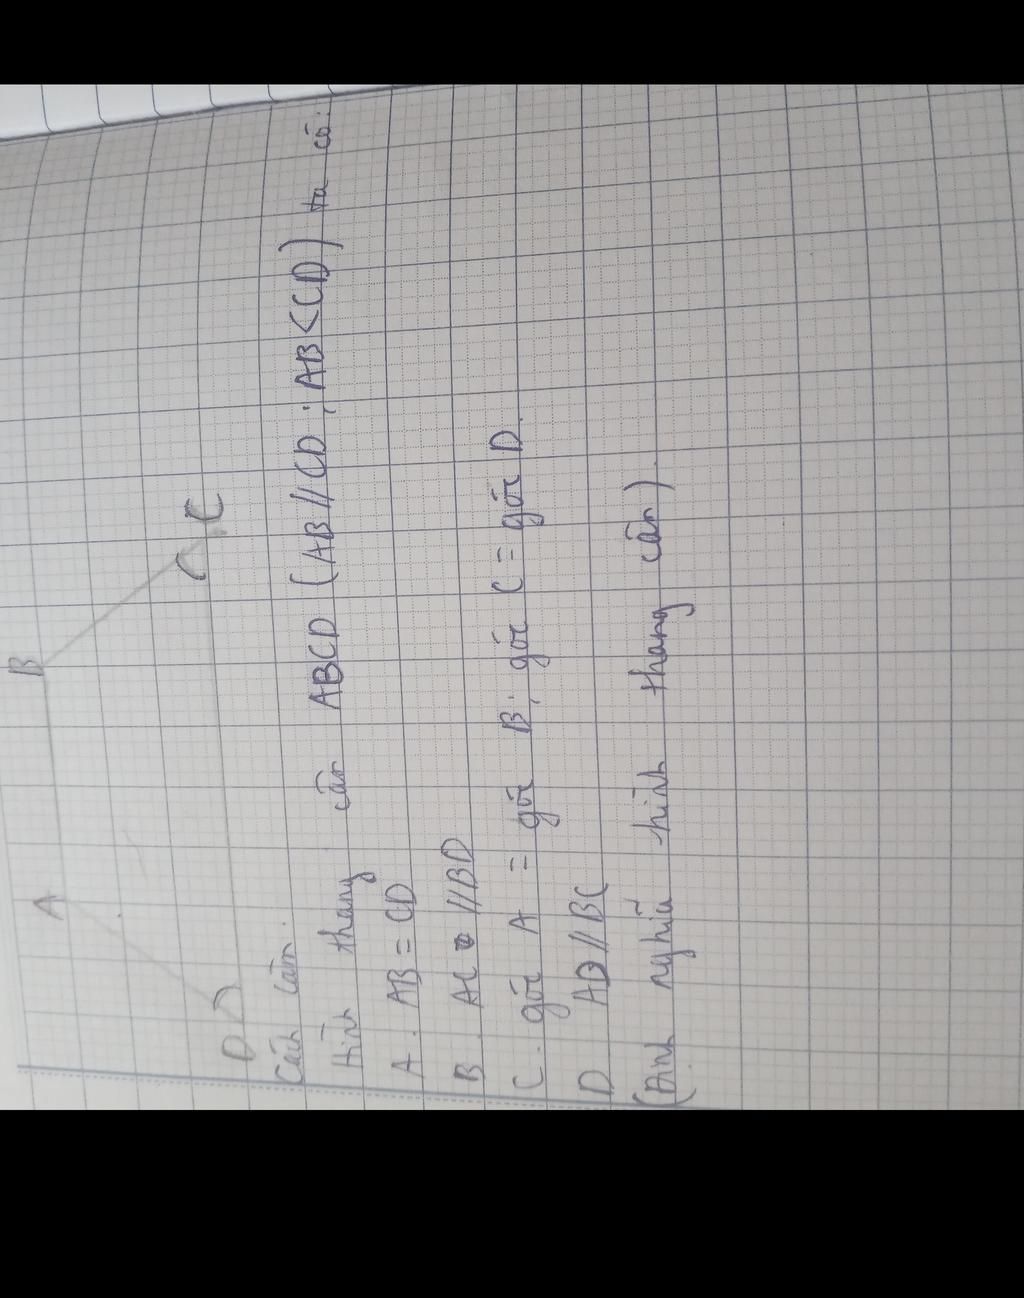 A B
D C
Cách làm:
Hình thang cân ABCD (AB // CD; AB < CD) ta có:
A. AB = CD
B. AC // BD
C. góc A = góc B; góc C = góc D.
D AD // BC
(Định nghĩa hình thang cân).